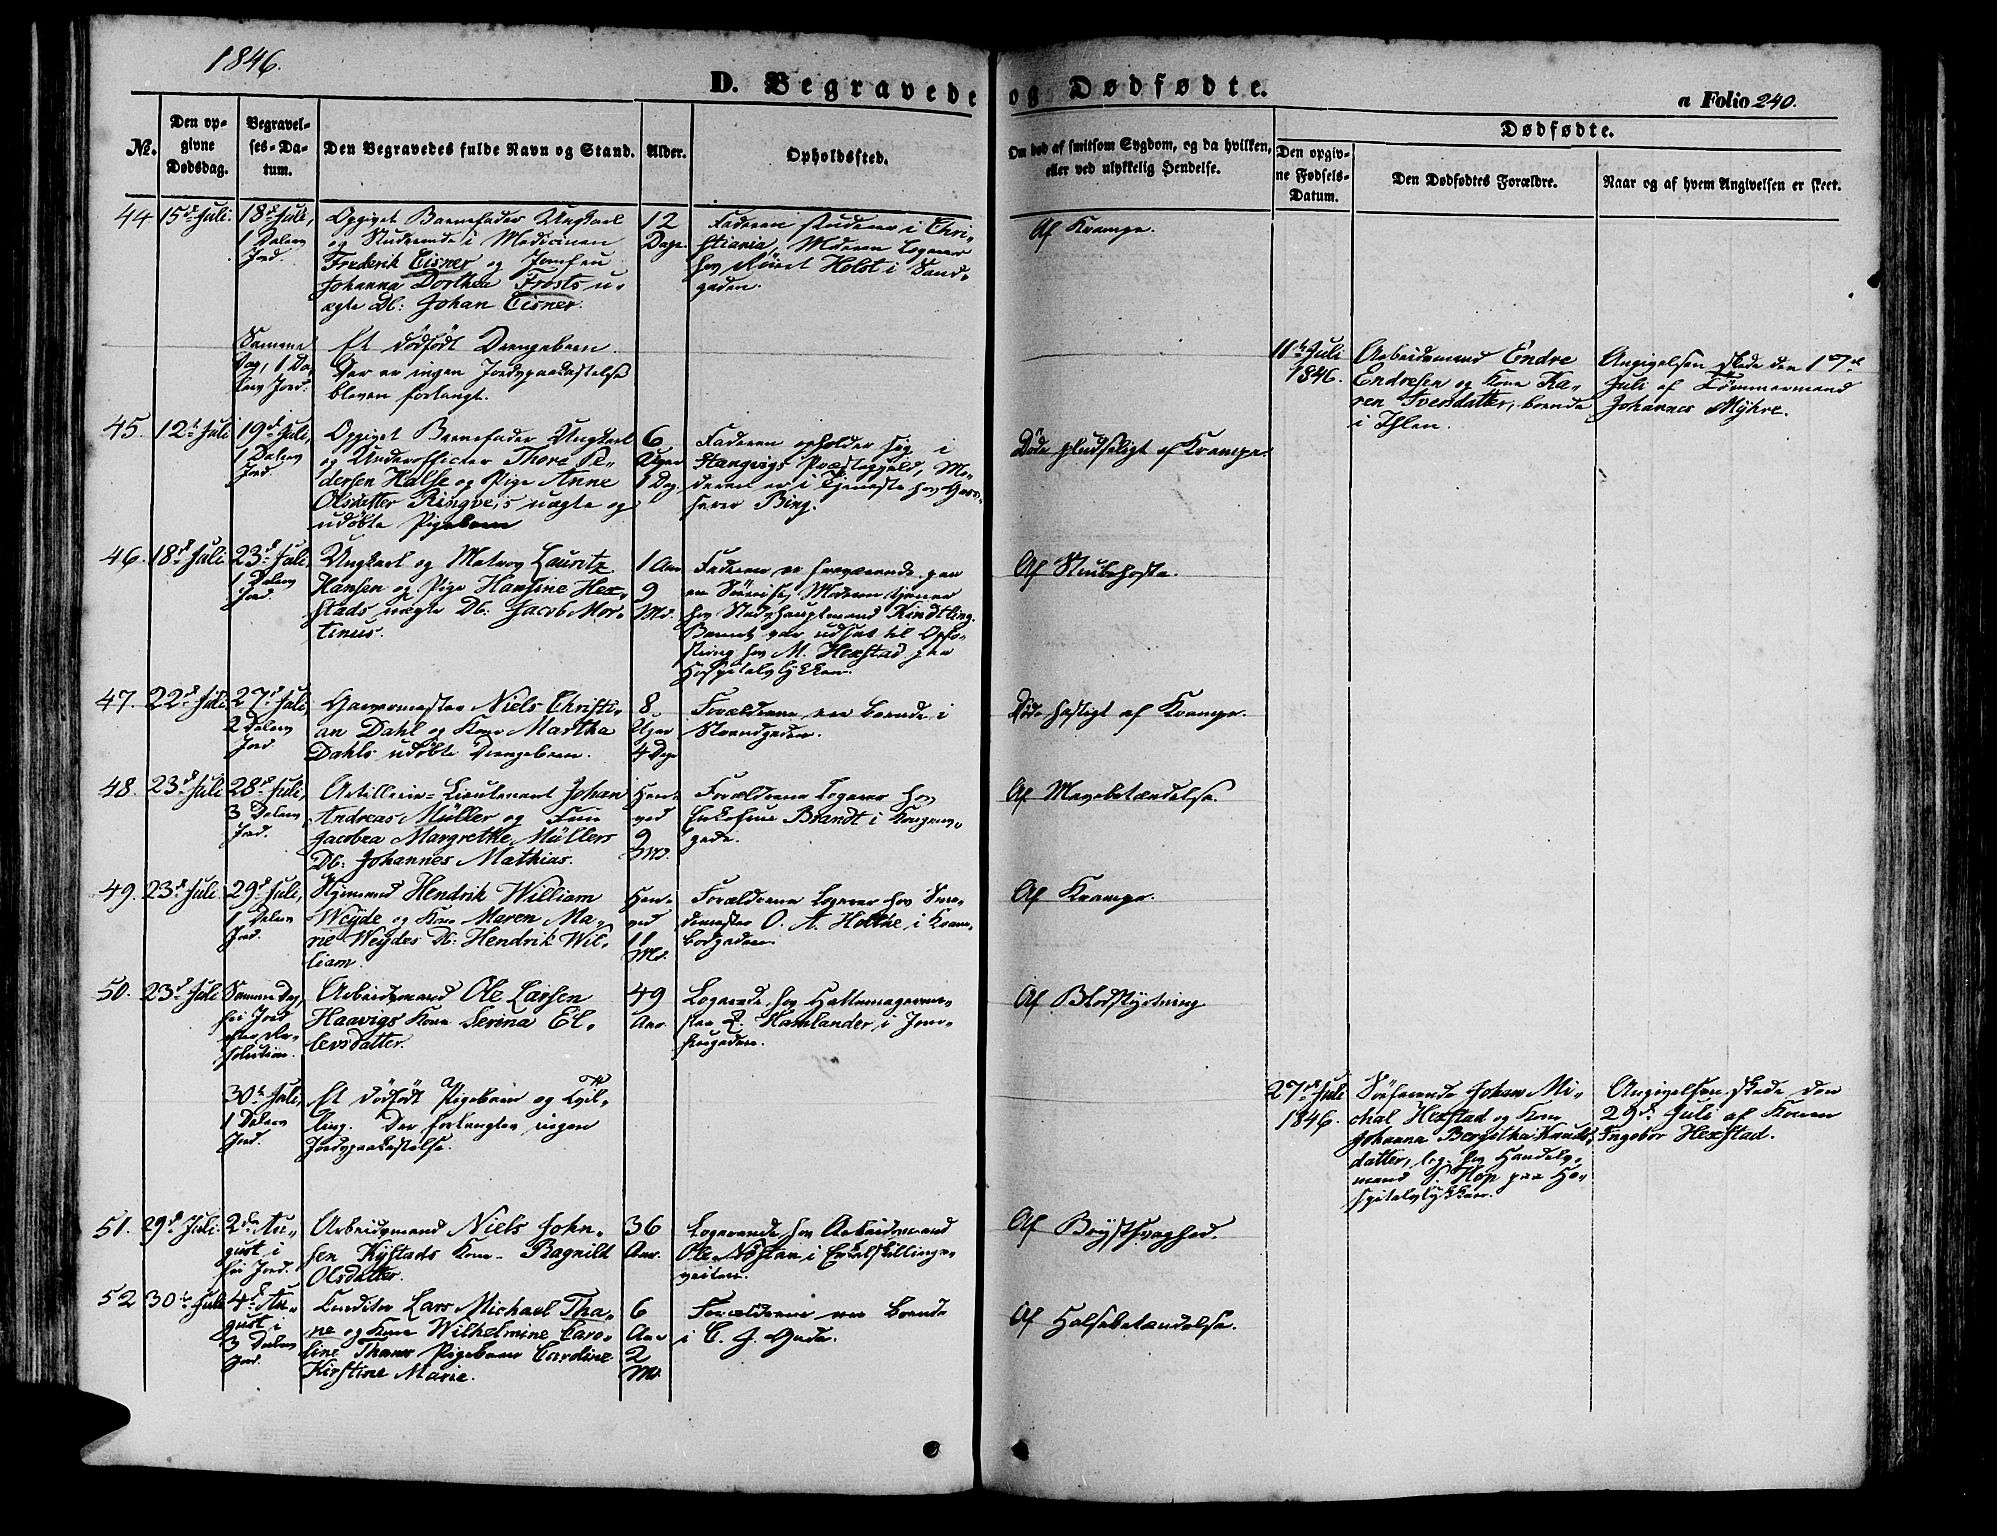 1846.
D. Begravede og Dødfødte.
a Folio 240.
No.
Den opgivne Dødsdag.
Begravelses-Datum.
Den Begravedes fulde Navn og Stand.
Alder.
Opholdssted.
Om død af smitsom Sygdom, og da hvilken, eller ved ulykkelig Hendelse.
Dødfødte.
Den opgivne Fødsels-Datum.
Den Dødfødtes Forældre.
Naar og af hvem Angivelsen er skeet.
44 15de Juli. 18de Juli, 1 Dalers Jord.
Opgivet Barnefader Ungkarl
og Studerende i Medicinen
Frederik Eisner og Jomfru
Johanna Dorthea Frosts u-
ægte Db: Johan Eisner.
12 Dage.
Faderen studerer i Chri-
stiania, Moderen logerer
hos Holst i Sand-
gaden.
Af Krampe.
Samme Dag, 1 Dalers Jord.
Et dødfødt Drengebarn.
Der er ingen Jordpaakastelse
bleven forlangt.
11te Juli 1846.
Arbeidsmand Endre
Endresen og Kone Ka-
ren Iversdatter, boende
i Ihlen.
Angivelsen skede den 17de
Juli af Tømmermand
Johannes Myhre.
45. 12te Juli 19de Juli, 1 Dalers Jord.
Opgivet Barnefader Ungkarl
og Underofficier Thore Pe-
dersen Halse og Pige Anne
Olsdatter Ringve's uægte og
udøbte Pigebarn
6 Uger 1 Dag
Faderen opholder sig i
Stangvigs Præstegjeld, Mo-
deren er i Tjeneste hos
Bing.
Døde pludseligt af Krampe.
46. 18de Juli 23de Juli, 1 Dalers Jord.
Ungkarl og Matros Lauritz
Hansen og Pige Hansine Hex-
stads uægte Db. Jacob Mor-
tinus.
1 Aar 9 Md.
Faderen er fraværende paa
en Søreise, Moderen tjener
hos Stadshauptmand Kindtling.
Barnet var udsat til Opfo-
string hos M. Hexstad paa
Hospitalsløkken.
Af Strubehoste.
47. 22de Juli 27de Juli, 2 Dalers Jord
Garvermester Niels Christi-
an Dahl og Kone Martha
Dahls udøbte Drengebarn.
8 Uger 4 Dage
Forældrene ere boende i
Strandgaden.
Døde hastigt af Krampe.
48. 23de Juli 28de Juli, 3 Dalers Jord.
Artillerie-Lieutenant Johan
Andreas Müller og Frue
Jacobea Margrethe Müllers
Db. Johannes Mathias.
Henved 9 Md.
Forældrene logerer hos
Brandt i Kongens-
gade.
Af Mavebetændelse.
49. 23de Juli 29de Juli, 1 Dalers Jord.
Hendrik William
Weyde og Kone Maren Ma-
rie Weydes Db: Hendrik Wil-
liam.
Henved 11 Md.
Forældrene logerer hos Sme-
demester O. A. i Kram-
bodgaden.
Af Krampe.
50. 23de Juli Samme Dag, fri Jord efter Resolution.
Arbeidsmand Ole Larsen
Haavigs Kone Serina El-
levsdatter.
49 Aar
Logerede hos Hattemagerme-
ster Hamlander i Jom-
frugaden.
Af Blodstyrtning
30te Juli, 1 Dalers Jord.
Et dødfødt Pigebarn og Tvil-
ling. Der forlangtes ingen
Jordpaakastelse.
27de Juli 1846.
Søfarende Johan Mi-
chal Hexstad og Kone
Johanna Bergitha Knuds-
datter, log. hos Handels-
mand Hop paa Ho-
spitalsløkken.
Angivelsen skede den
29de Juli af Konen
Ingebor Hexstad.
51. 29de Juli. 2den August i fri Jord.
Arbeidsmand Niels John-
sen Kystads Kone Ragnild
Olsdatter.
36 Aar.
Logerende hos Arbeidsmand
Ole i Enkelskillings-
veiten.
Af Brystsvaghed.
52 30te Juli 4de August i 3 Dalers Jord.
Conditor Lars Michael Tha-
ne og Kone Wilhelmine Caro-
line Thanes Pigebarn Caroline
Kirstine Marie.
6 Aar 2 Md.
Forældrene ere boende
i C. J. Gade.
Af Halsebetændelse.